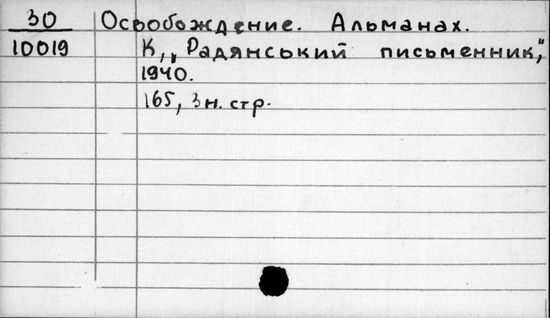 30 Освобождение. Альманах.
10019 К, „Радянський письменник",
1940.
165, 3 н. стр.